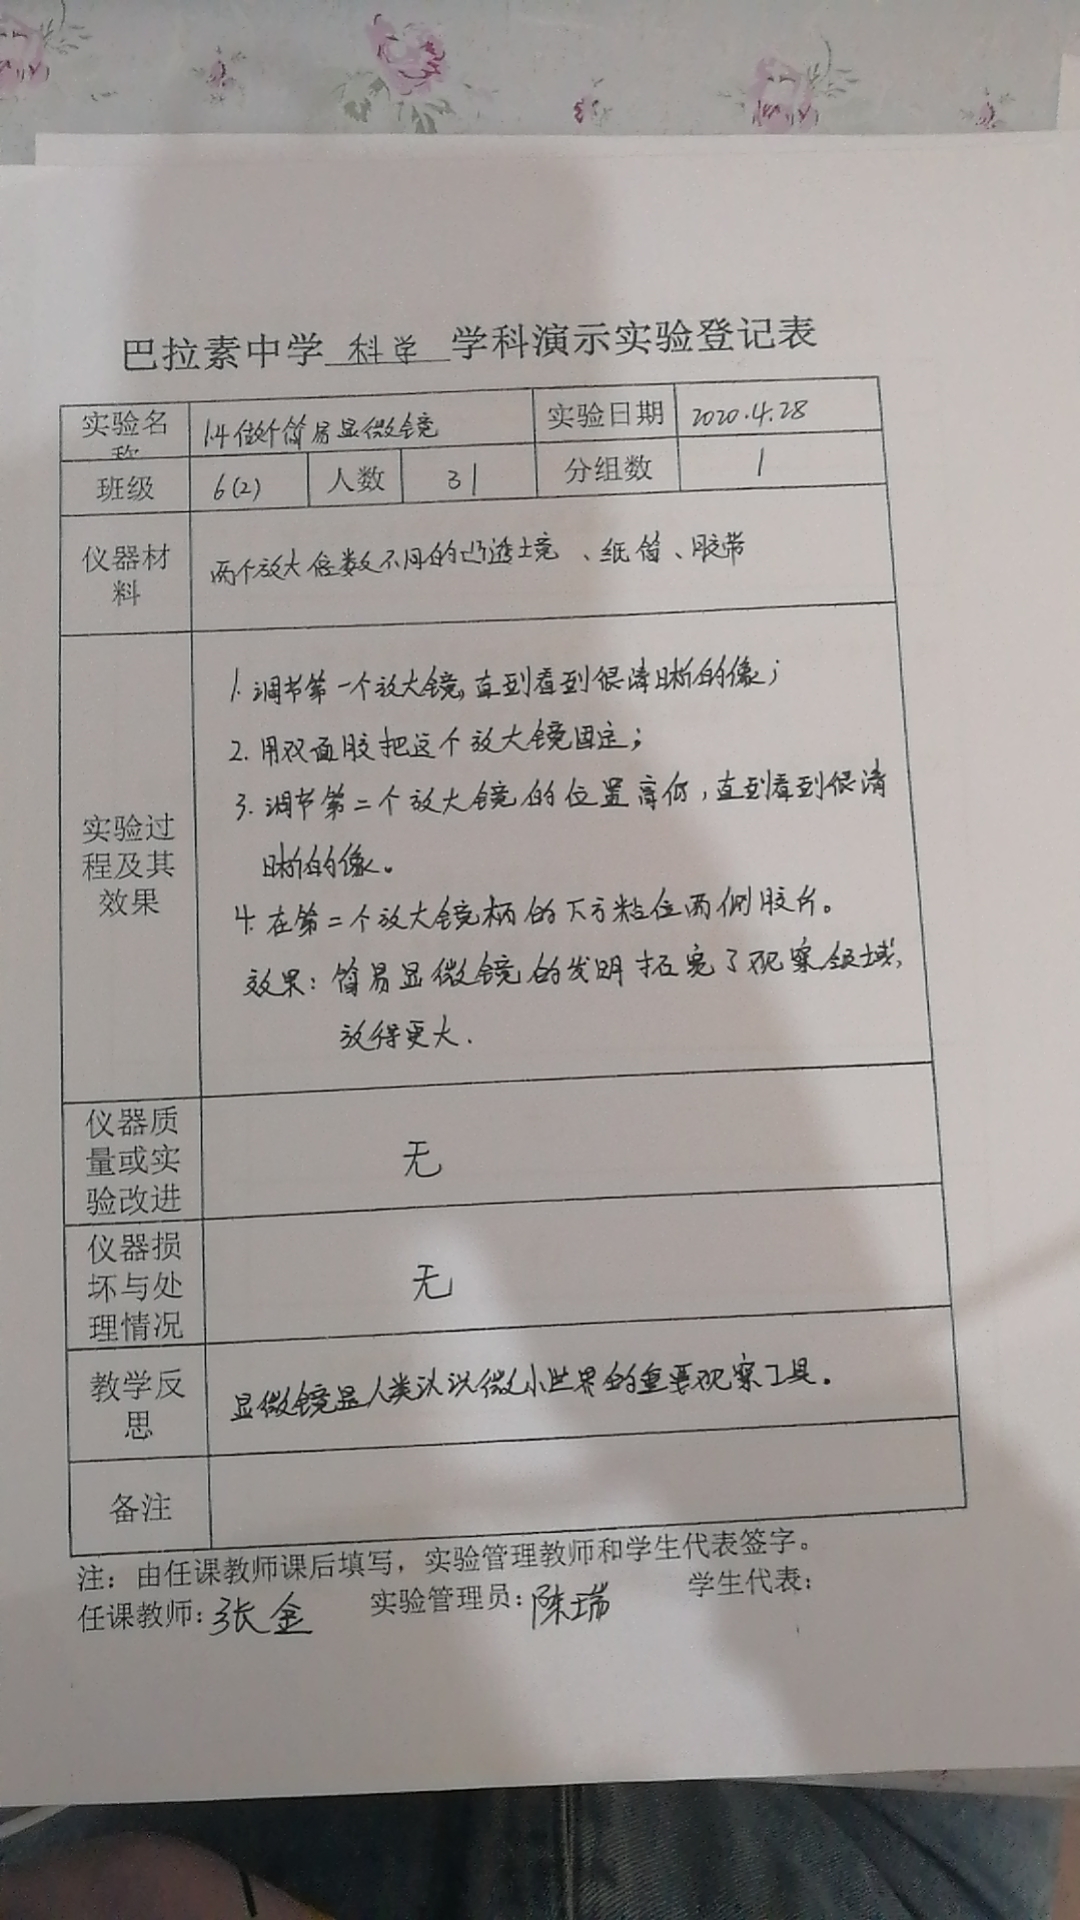 巴拉素中学 科学 学科演示实验登记表
实验名称 1.4做个简易显微镜 实验日期 2020.4.28
班级 6(2) 人数 31 分组数 1
仪器材料 两个放大倍数不同的凸透镜、纸筒、胶带
实验过程及其效果
1.调节第一个放大镜,直到看到很清晰的像;
2.用双面胶把这个放大镜固定;
3.调节第二个放大镜的位置高低,直到看到很清
晰的像。
4.在第二个放大镜柄的下方粘住两侧胶片。
效果:简易显微镜的发明拓宽了观察领域,
放得更大.
仪器质量或实验改进 无
仪器损坏与处理情况 无
教学反思 显微镜是人类认识微小世界的重要观察工具。
备注
注:由任课教师课后填写,实验管理教师和学生代表签字。
任课教师:张金 实验管理员:陈瑞 学生代表: